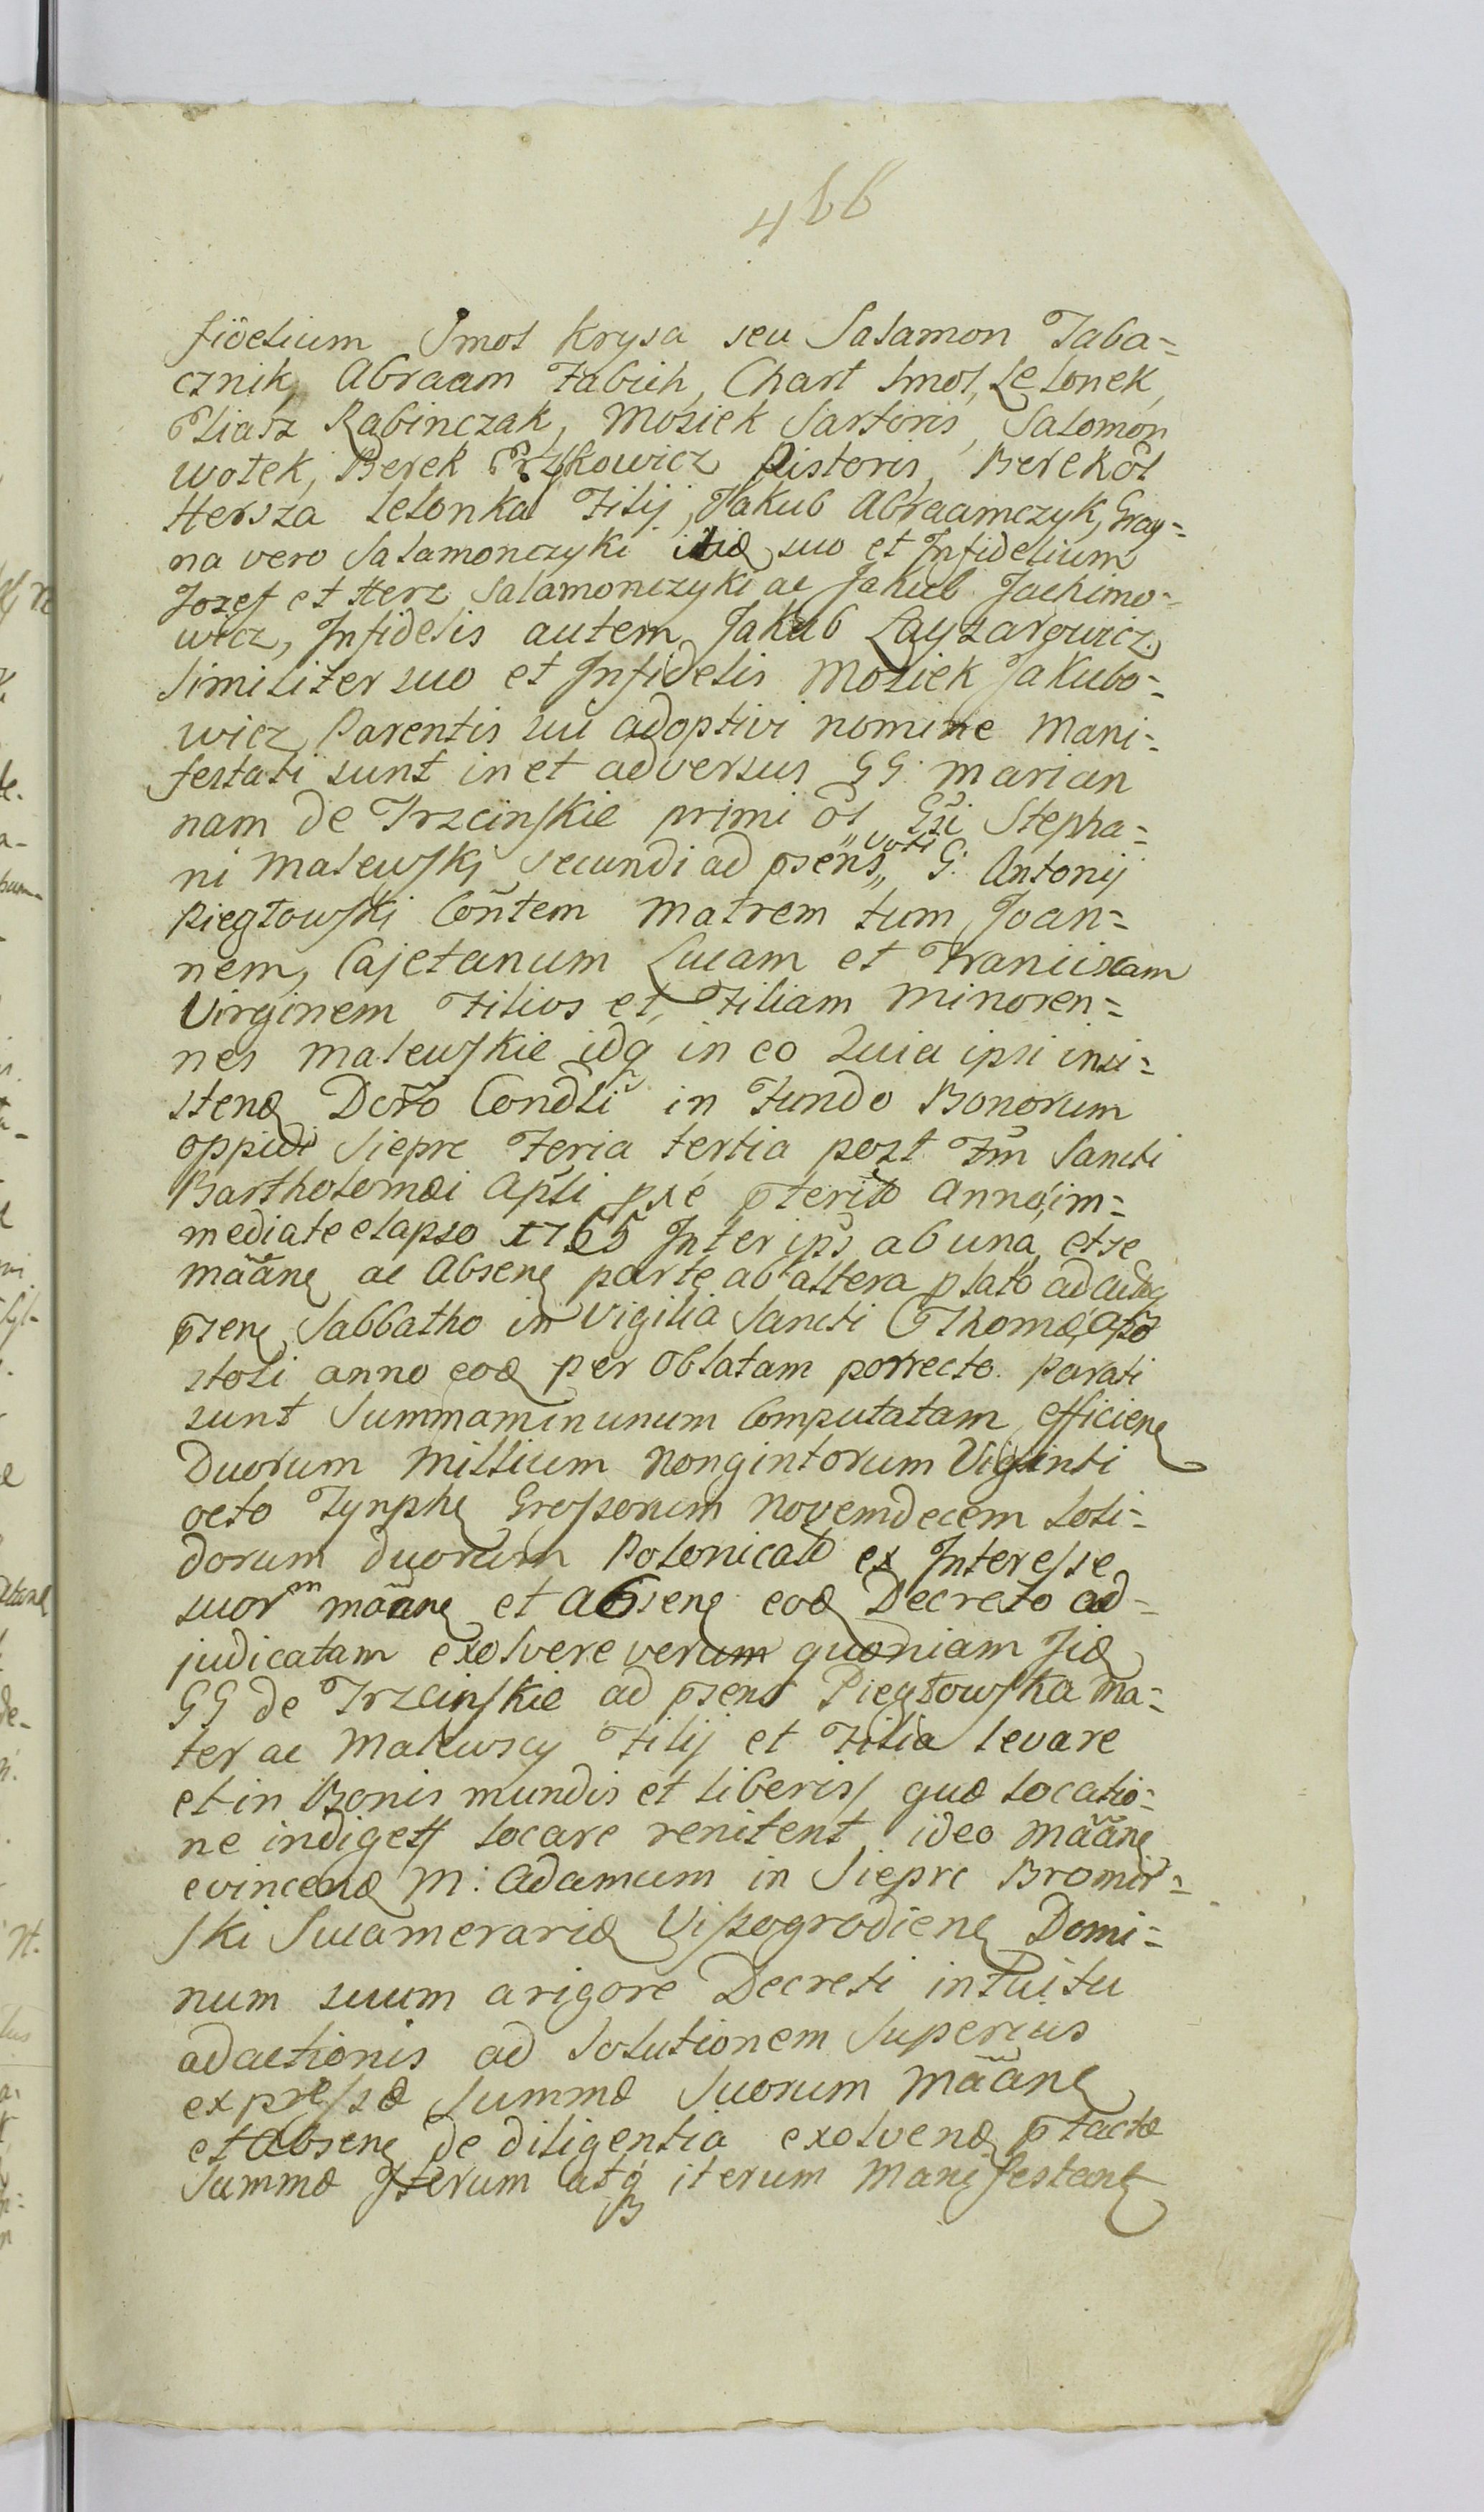 466
fidelium Smol Krysa seu Salamon Taba=
cznik, Abraam Fabich, Chart Smol, Lelonek,
Eliasz Rabinczak, Mosiek Sartoris, Salomon
Wołek, Berek Pistoris, Berek ol
Hersza Lelonka Filij, Jakub Abraamczyk, Gray=
na vero Salamonczyki suo et Infidelium
Jozef et Herz Salamonczyki ac Jakub Jachimo=
wicz, Infidelis autem Jakub Layzarowicz
Similiter suo et Infidelis Mosiek Jakubo=
wicz Parentis sui adoptivi nomine Mani=
festati sunt in et adversus GG: Marian
nam de Trzcinskie primi ol Gsi Stepha=
ni Malewski secundi ad psens „voti„ G: Antonij
Piegłowski Contem Matrem tum Joan=
nem, Cajetanum Lucam et Franciscam
Virginem Filios et Filiam Minoren=
nes Malewskie idq in eo Quia ipsi insi=
stend Dcto Condli in Fundo Bonorum
oppidi Sieprc Feria tertia post Fm Sancti
Bartholomæi Apli pxe pterito anno, im=
mediate elapso 1765 Inter ips ab una et se
mãane ac Absene parte ab altera plato ad
psene Sabbatho in Vigilia Sancti Thomæ, Apo
stoli anno eod per Oblatam porrecto. Parati
sunt Summam in unum Computatam efficiene
Duorum Millium Nongintorum Viginti
octo Tynphe Grossorum Novemdecem Soli=
dorum duorum Polonicalo ex Interesse
suorm mãane et Absene eod Decreto ad=
judicatam exolvere verum quoniam
GG de Trzcinskie ad psens Piegłowska Ma=
ter ac Malewscy Filij et Filia levare
et in Bonis mundis et liberis/ quæ locatio=
ne indiget/ locare renitent, ideo mãane
evincend M: Adamum in Sieprc Bromir=
ski Succamerarid Wyszogrodiene Domi=
num suum a rigore Decreti intuitu
adactionis ad Solutionem Superius
expressæ Summæ Suorum mãane
et Absene de diligentia exolvend ptactæ
Summæ Iterum atq iterum Manifestant